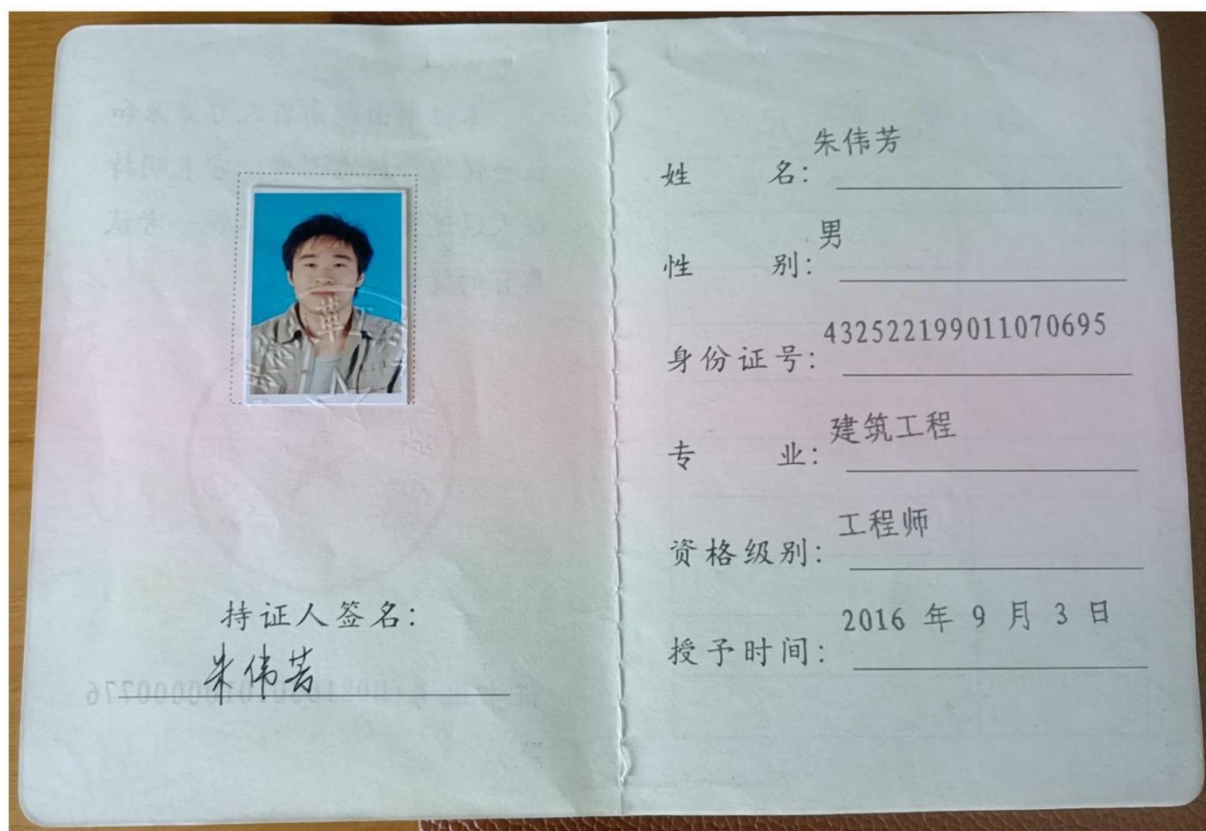 持证人签名:
朱伟芳
姓 名: 朱伟芳
性 别: 男
身份证号: 432522199011070695
专 业: 建筑工程
资格级别: 工程师
授予时间: 2016 年 9 月 3 日